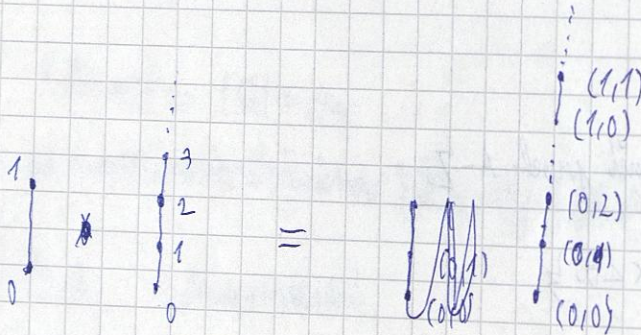 1
0
3
2
1
0
=
(1,1)
(1,0)
(0,2)
(0,1)
(0,0)